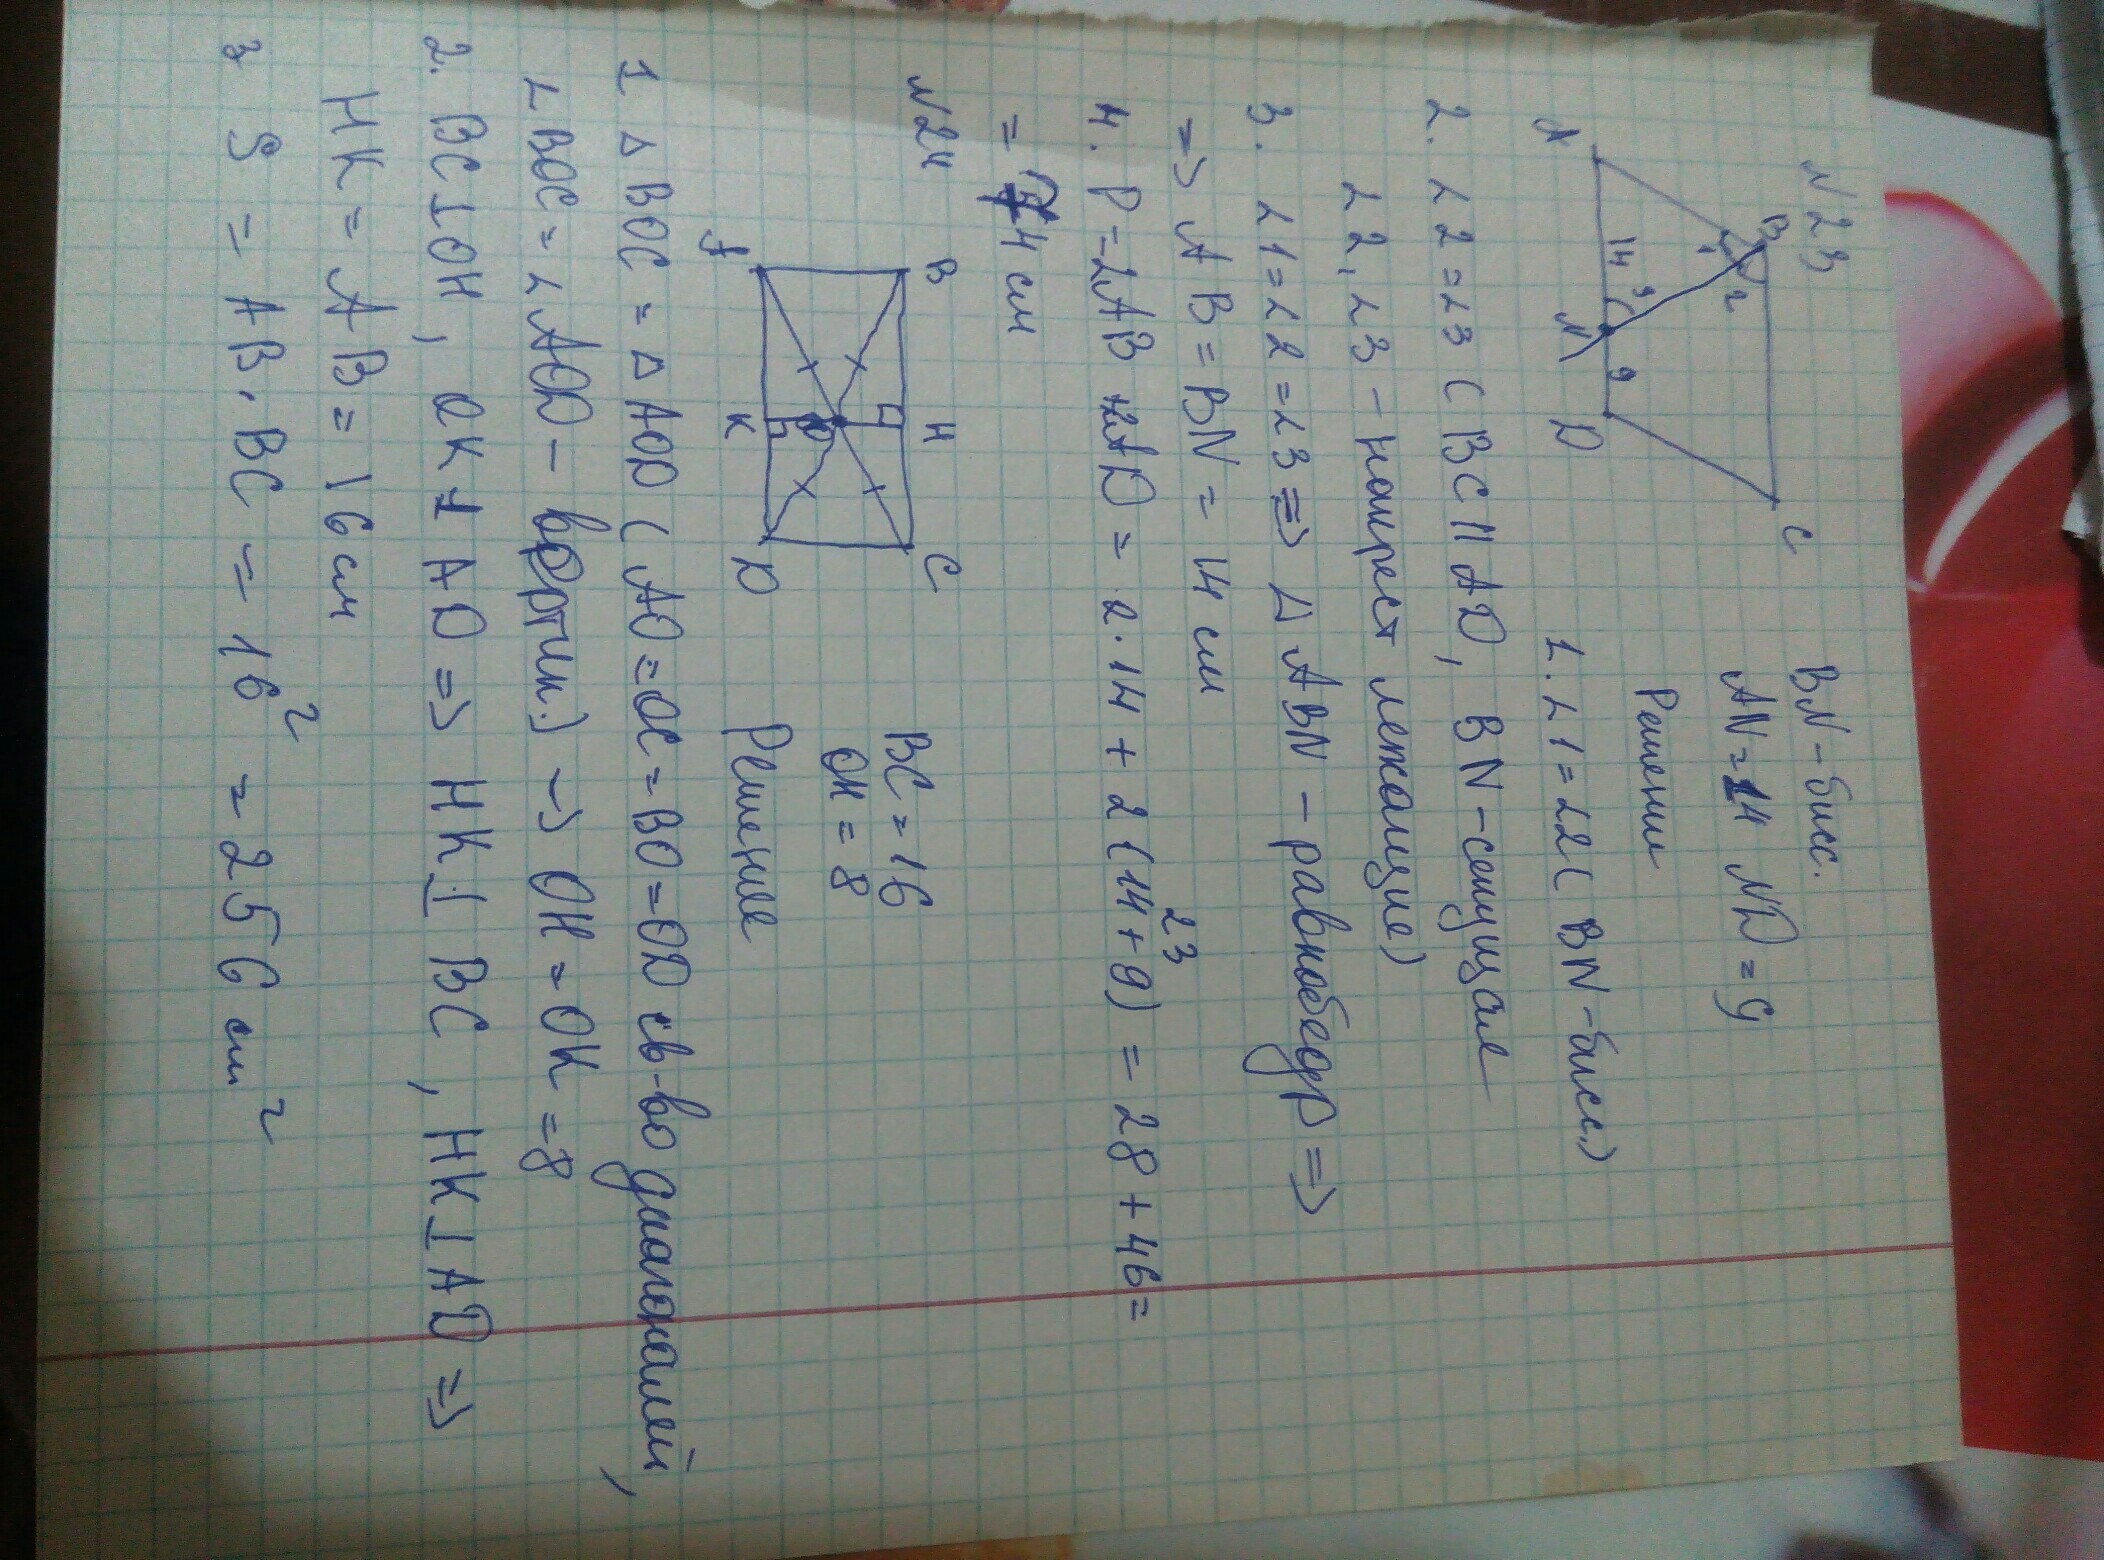 N23
BN - бисс.
AN=14 ND=9
Решение
A 14 3 N 9 D B 1 2 C
1. ∠1=∠2 ( BN - бисс.)
2. ∠2=∠3 ( BC || AD, BN - секущая
∠2, ∠3 - накрест лежащие)
3. ∠1=∠2=∠3 => Δ ABN - равнобедр =>
=> AB = BN = 14 см
4. P=2AB + 2AD = 2·14 + 2(14+9) = 28 + 46 =
23
= 74 см
N24
B H C
A K D
O
BC = 16
OH = 8
Решение
1 Δ BOC = Δ AOD ( AO=OC=BO=OD св-во диагоналей,
∠BOC=∠AOD - вертик.) => OH = OK = 8
2. BC ⊥ OH, OK ⊥ AD => HK ⊥ BC, HK ⊥ AD =>
HK = AB = 16 см
3 S = AB · BC = 16² = 256 см²